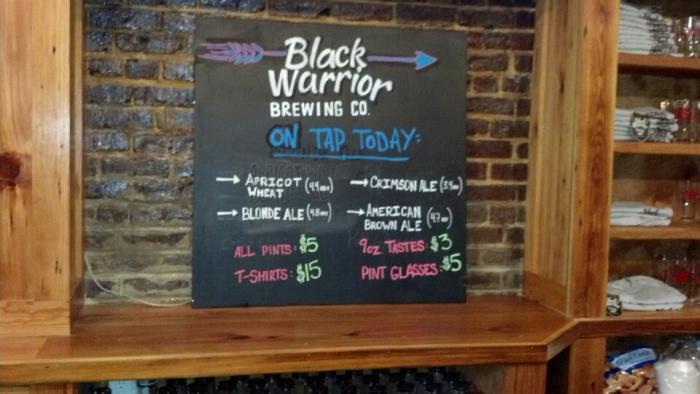 Black
Warrior
BREWING CO.
ON TAP TODAY:
→ APRICOT WHEAT (4.4 ABV)
→ CRIMSON ALE (3.9 ABV)
→ BLONDE ALE (4.8 ABV)
→ AMERICAN BROWN ALE (4.7 ABV)
ALL PINTS: $5
9oz. TASTES: $3
T-SHIRTS: $15
PINT GLASSES: $5